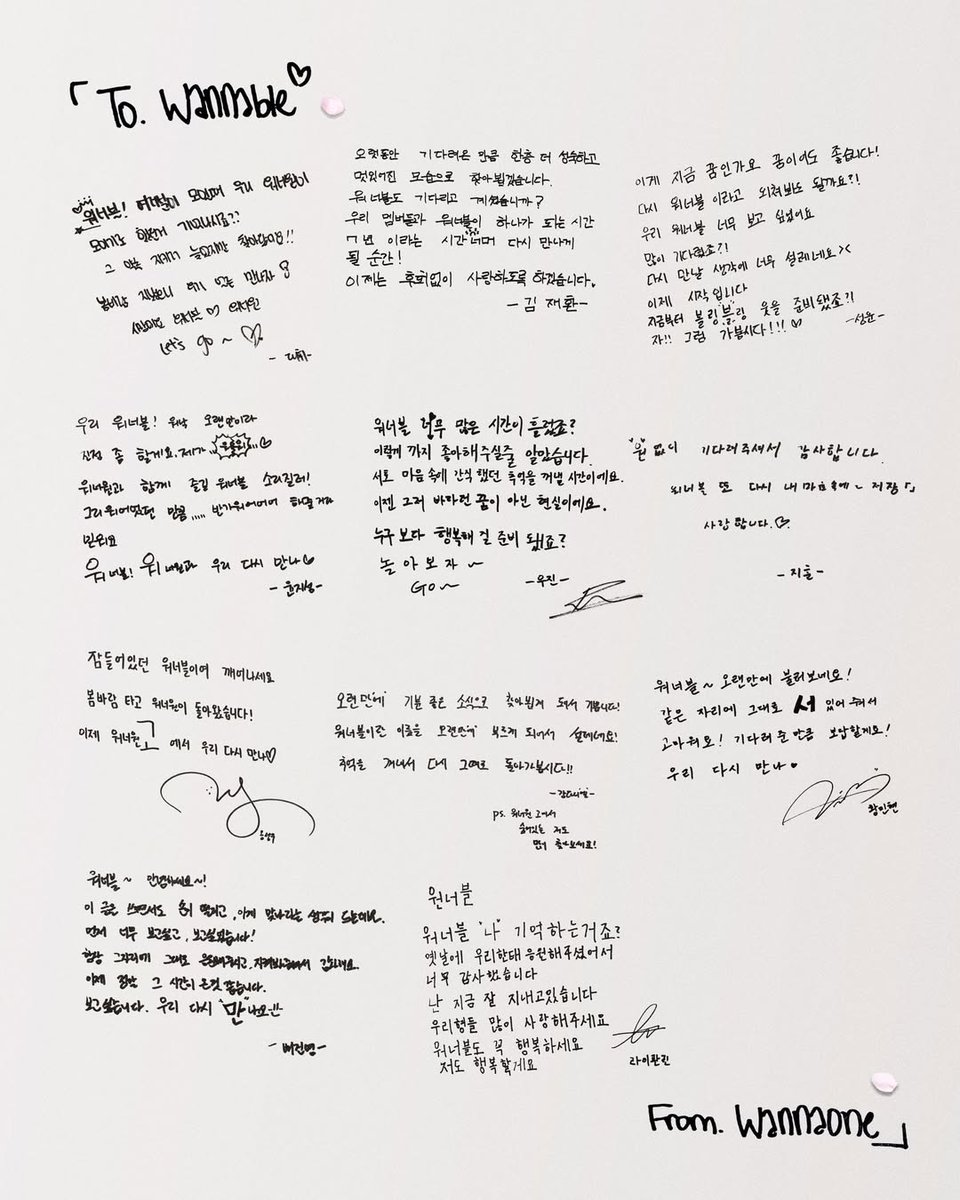 「To. Wannable♡
워너블! 여러분이
우리 워너원이
봄바람
워너블 ♡ 워너원
Let's go ~ ♡
-대휘-
오랫동안 기다려온 만큼 한층 더 성숙하고
멋있어진 모습으로 찾아뵙겠습니다.
워너블도 기다리고 계셨습니까?
우리 멤버들과 워너블이 하나가 되는 시간
7년 이라는 시간 너머 다시 만나게
될 순간!
이제는 후회없이 사랑하도록 하겠습니다.
-김재환-
이게 지금 꿈인가요 꿈이어도 좋습니다!
다시 워너블 이라고 외쳐봐도 될까요?!
우리 워너블 너무 보고 싶었어요
많이 기다렸죠?!
다시 만날 생각에 너무 설레네요><
이제 시작입니다
지금부터 블링"블"링 웃을 준비됐죠?!
자!! 그럼 가봅시다!!! ♡
-성운-
우리 워너블! 워낙 오랜만이라
진정 좀 할게요. 제가
워너원과 함께 즐길 워너블 소리질러!
그리워어했던 만큼,,,,, 반가워어어어 하실거라
믿워요
워너블! 워너원과 우리 다시 만나♡
-윤지성-
워너블 너무 많은 시간이 흘렀죠?
이렇게 까지 좋아해주실줄 알았습니다.
서로 마음 속에 간직했던 추억을 꺼낼 시간이에요.
이젠 그려 바라던 꿈이 아닌 현실이에요.
누구보다 행복해 질 준비 됐죠?
놀아보자~
Go~
-우진-
"원"없이 기다려주셔서 감사합니다.
워너블 또 다시 내 마음속에~ 저장「」
사랑합니다.♡
-지훈-
잠들어있던 워너블이여 깨어나세요
봄바람 타고 워너원이 돌아왔습니다!
이제 워너원고 에서 우리 다시 만나♡
옹성우
오랜만에 기분 좋은 소식으로 찾아뵙게 돼서 기쁩니다!
워너블이란 이름을 오랜만에 부르게 되어서 설레네요!
추억을 꺼내서 다시 그때로 돌아가봅시다!!
-강다니엘-
ps. 워너원 고에서
숨어있는 저도
먼저 찾아보세요!
워너블~ 오랜만에 불러보네요!
같은 자리에 그대로 서 있어 줘서
고마워요! 기다려준만큼 보답할게요!
우리 다시 만나♡
황민현
워너블~ 안녕하세요~!
이 글을 쓰면서도 손이 떨리고, 이게 맞나라는 생각이 드는데요.
먼저 너무 보고싶고, 보고싶었습니다!
항상 그자리에 그대로 응원해주시고, 지켜봐주셔서 감사해요.
이제 정말 그 시간이 온것 같습니다.
보고싶습니다. 우리 다시 "만"나요!!
-배진영-
원너블
워너블 "나" 기억하는거죠?
옛날에 우리한태 응원해주셨어서
너무 감사했습니다
난 지금 잘 지내고있습니다
우리형들 많이 사랑해주세요
워너블도 꼭 행복하세요
저도 행복할게요
라이관린
From. Wannaone」